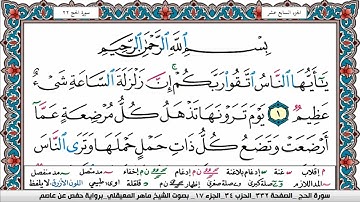 الجزء السابع عشر
سورة الحج ٢٢
بِسْمِ ٱللَّهِ ٱلرَّحْمَٰنِ ٱلرَّحِيمِ
يَٰٓأَيُّهَا ٱلنَّاسُ ٱتَّقُوا۟ رَبَّكُمْ ۚ إِنَّ زَلْزَلَةَ ٱلسَّاعَةِ شَىْءٌ
عَظِيمٌ ١ يَوْمَ تَرَوْنَهَا تَذْهَلُ كُلُّ مُرْضِعَةٍ عَمَّآ
أَرْضَعَتْ وَتَضَعُ كُلُّ ذَاتِ حَمْلٍ حَمْلَهَا وَتَرَى ٱلنَّاسَ
سورة الحج_ الصفحة ٣٣٢_ الحزب ٣٤_ الجزء ١٧_ بصوت الشيخ ماهر المعيقلي_ برواية حفص عن عاصم